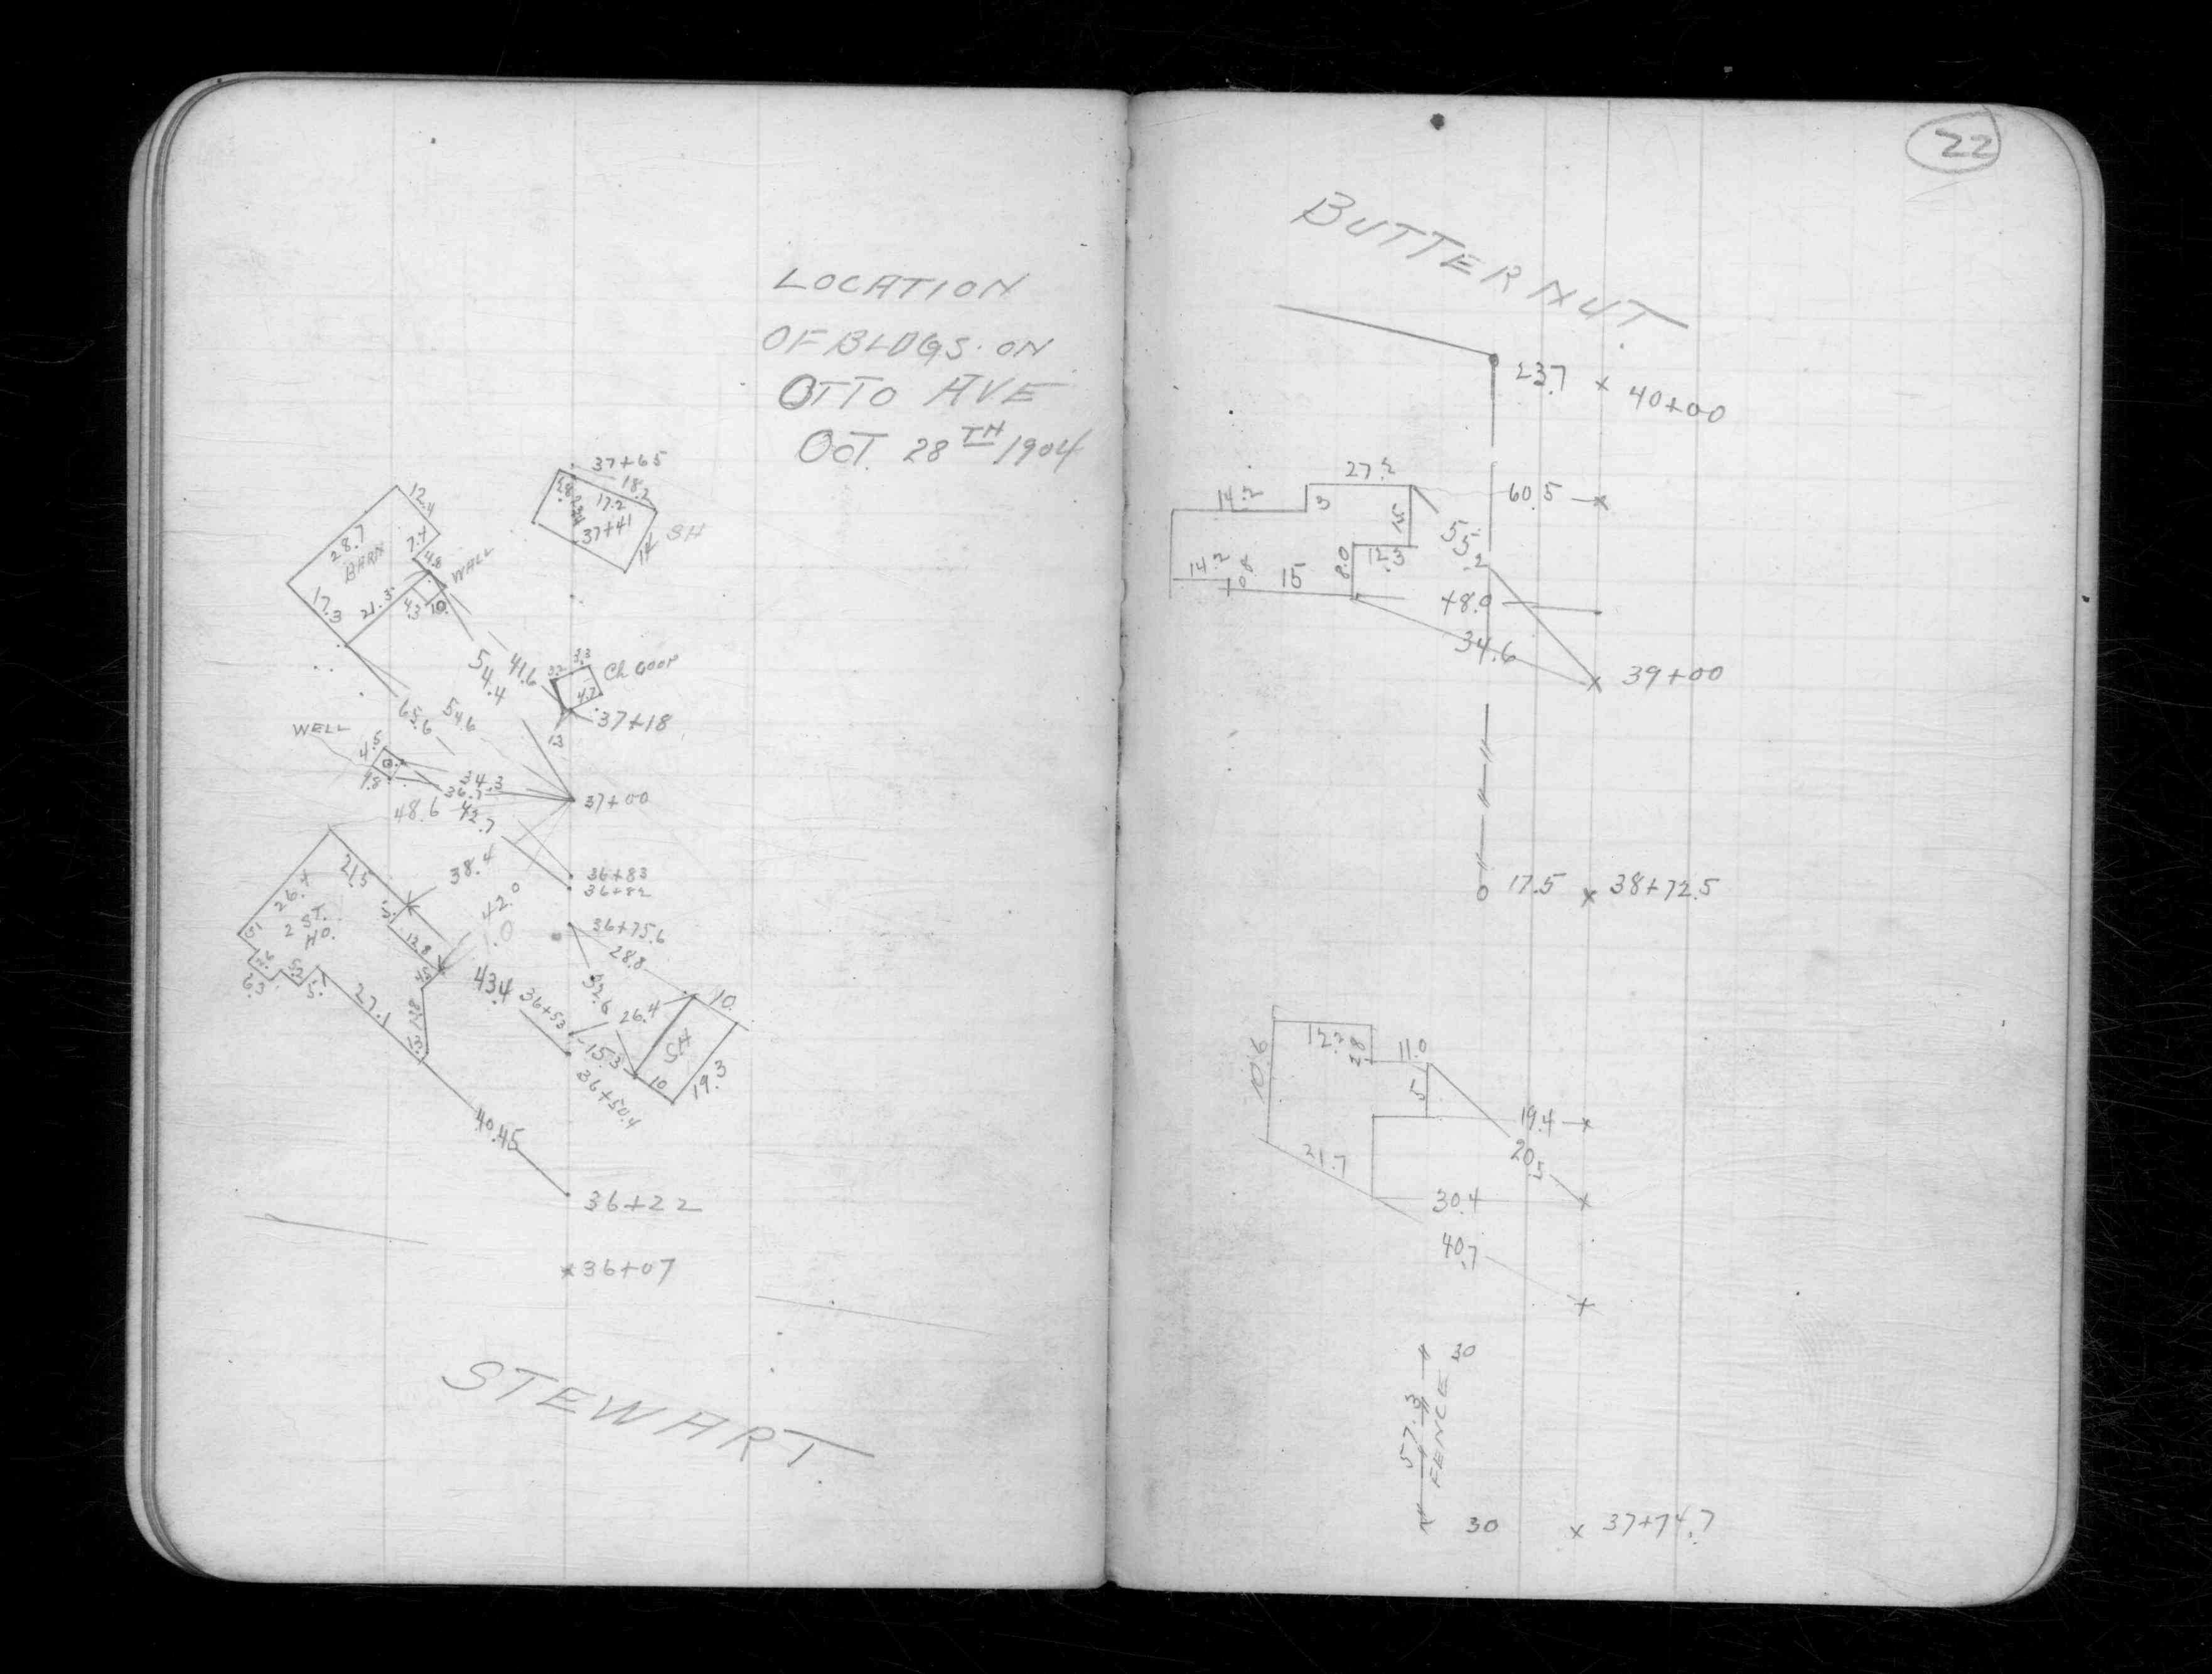 LOCATION
OF BLDGS. ON
OTTO AVE
OCT. 28TH 1904
37+65
18.2
17.2
37+41
14
SH
12.4
28.7
BARN
7.4
4.8
WALL
17.3
21.3
4.3
10.
54.4
41.6
3.2
3.3
Ch COOP
4.7
37+18
1.3
65.6
54.6
WELL
4.5
4.8
34.3
36.7
37+00
48.6
42.7
36+83
36+82
38.4
21.5
26.4
2 ST.
HO.
5
42.0
1.0
12.8
36+75.6
28.8
6.3
5.2
5.
27.1
43.4
36+53
32.6
26.4
10.
SH
15.3
10
19.3
36+50.4
40.45
36+22
36+07
STEWART.
22
BUTTERNUT.
23.7 x 40+00
27.2
14.2
3
60.5
15
55.2
14.2
10.8
15
8.0
12.3
48.0
34.6
39+00
17.5 x 38+72.5
12.2
2.8
11.0
10.6
5
19.4
20.5
21.7
30.4
40.7
30
57.3
FENCE
30 x 37+74.7